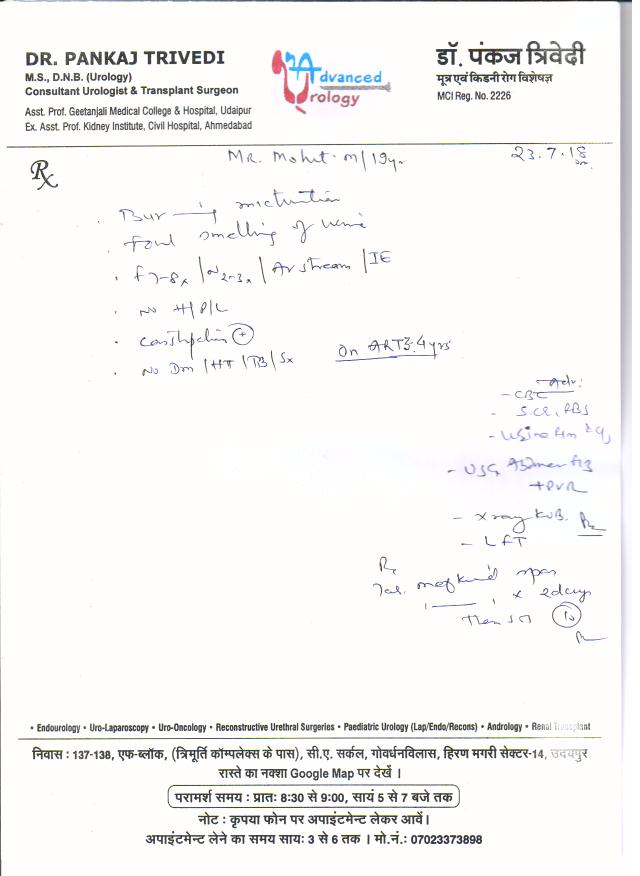 DR. PANKAJ TRIVEDI
M.S., D.N.B. (Urology)
Consultant Urologist & Transplant Surgeon
Asst. Prof. Geetanjali Medical College & Hospital, Udaipur
Ex. Asst. Prof. Kidney Institute, Civil Hospital, Ahmedabad
Advanced
Urology
डॉ. पंकज त्रिवेदी
मूत्र एवं किडनी रोग विशेषज्ञ
MCI Reg. No. 2226
Rx
Mr. Mohit. m/19yr
23.7.18
Burning micturition
Foul smelling of urine
F 7-8x / N 2-3x / Av stream / IE
No H/P/L
Constipation +
No Dm / HT / TB / Sx
On ART 3-4 yrs
Adv:
- CBC
- S.CR, RBS
- USG
+ PVR
- X ray KUB.
- LFT
Rx
Tab. spas
x 2 days
Then
• Endourology • Uro-Laparoscopy • Uro-Oncology • Reconstructive Urethral Surgeries • Paediatric Urology (Lap/Endo/Recons) • Andrology • Renal Transplant
निवास : 137-138, एफ-ब्लॉक, (त्रिमूर्ति कॉम्पलेक्स के पास), सी.ए. सर्कल, गोवर्धनविलास, हिरण मगरी सेक्टर-14, उदयपुर
रास्ते का नक्शा Google Map पर देखें ।
परामर्श समय : प्रातः 8:30 से 9:00, सायं 5 से 7 बजे तक
नोट : कृपया फोन पर अपाइंटमेन्ट लेकर आवें।
अपाइंटमेन्ट लेने का समय सायः 3 से 6 तक । मो.नं.: 07023373898